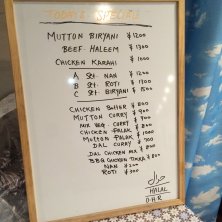 TODAY'S SPECIAL
MUTTON BIRYANI ¥1200
BEEF HALEEM ¥1300
CHICKEN KARAHI ¥1000
A Set NAN ¥1200
B Set ROTI ¥1300
C Set BIRYANI ¥1500
CHICKEN Butter ¥800
MUTTON CURRY ¥900
MIX VEG. CURRY ¥700
CHICKEN PALAK ¥800
MUTTON PALAK ¥1000
DAL CURRY ¥700
DAL CHICKEN MIX ¥800
BBQ CHICKEN TIKKA ¥800
NAN 200
ROTI ¥300
حلال
HALAL